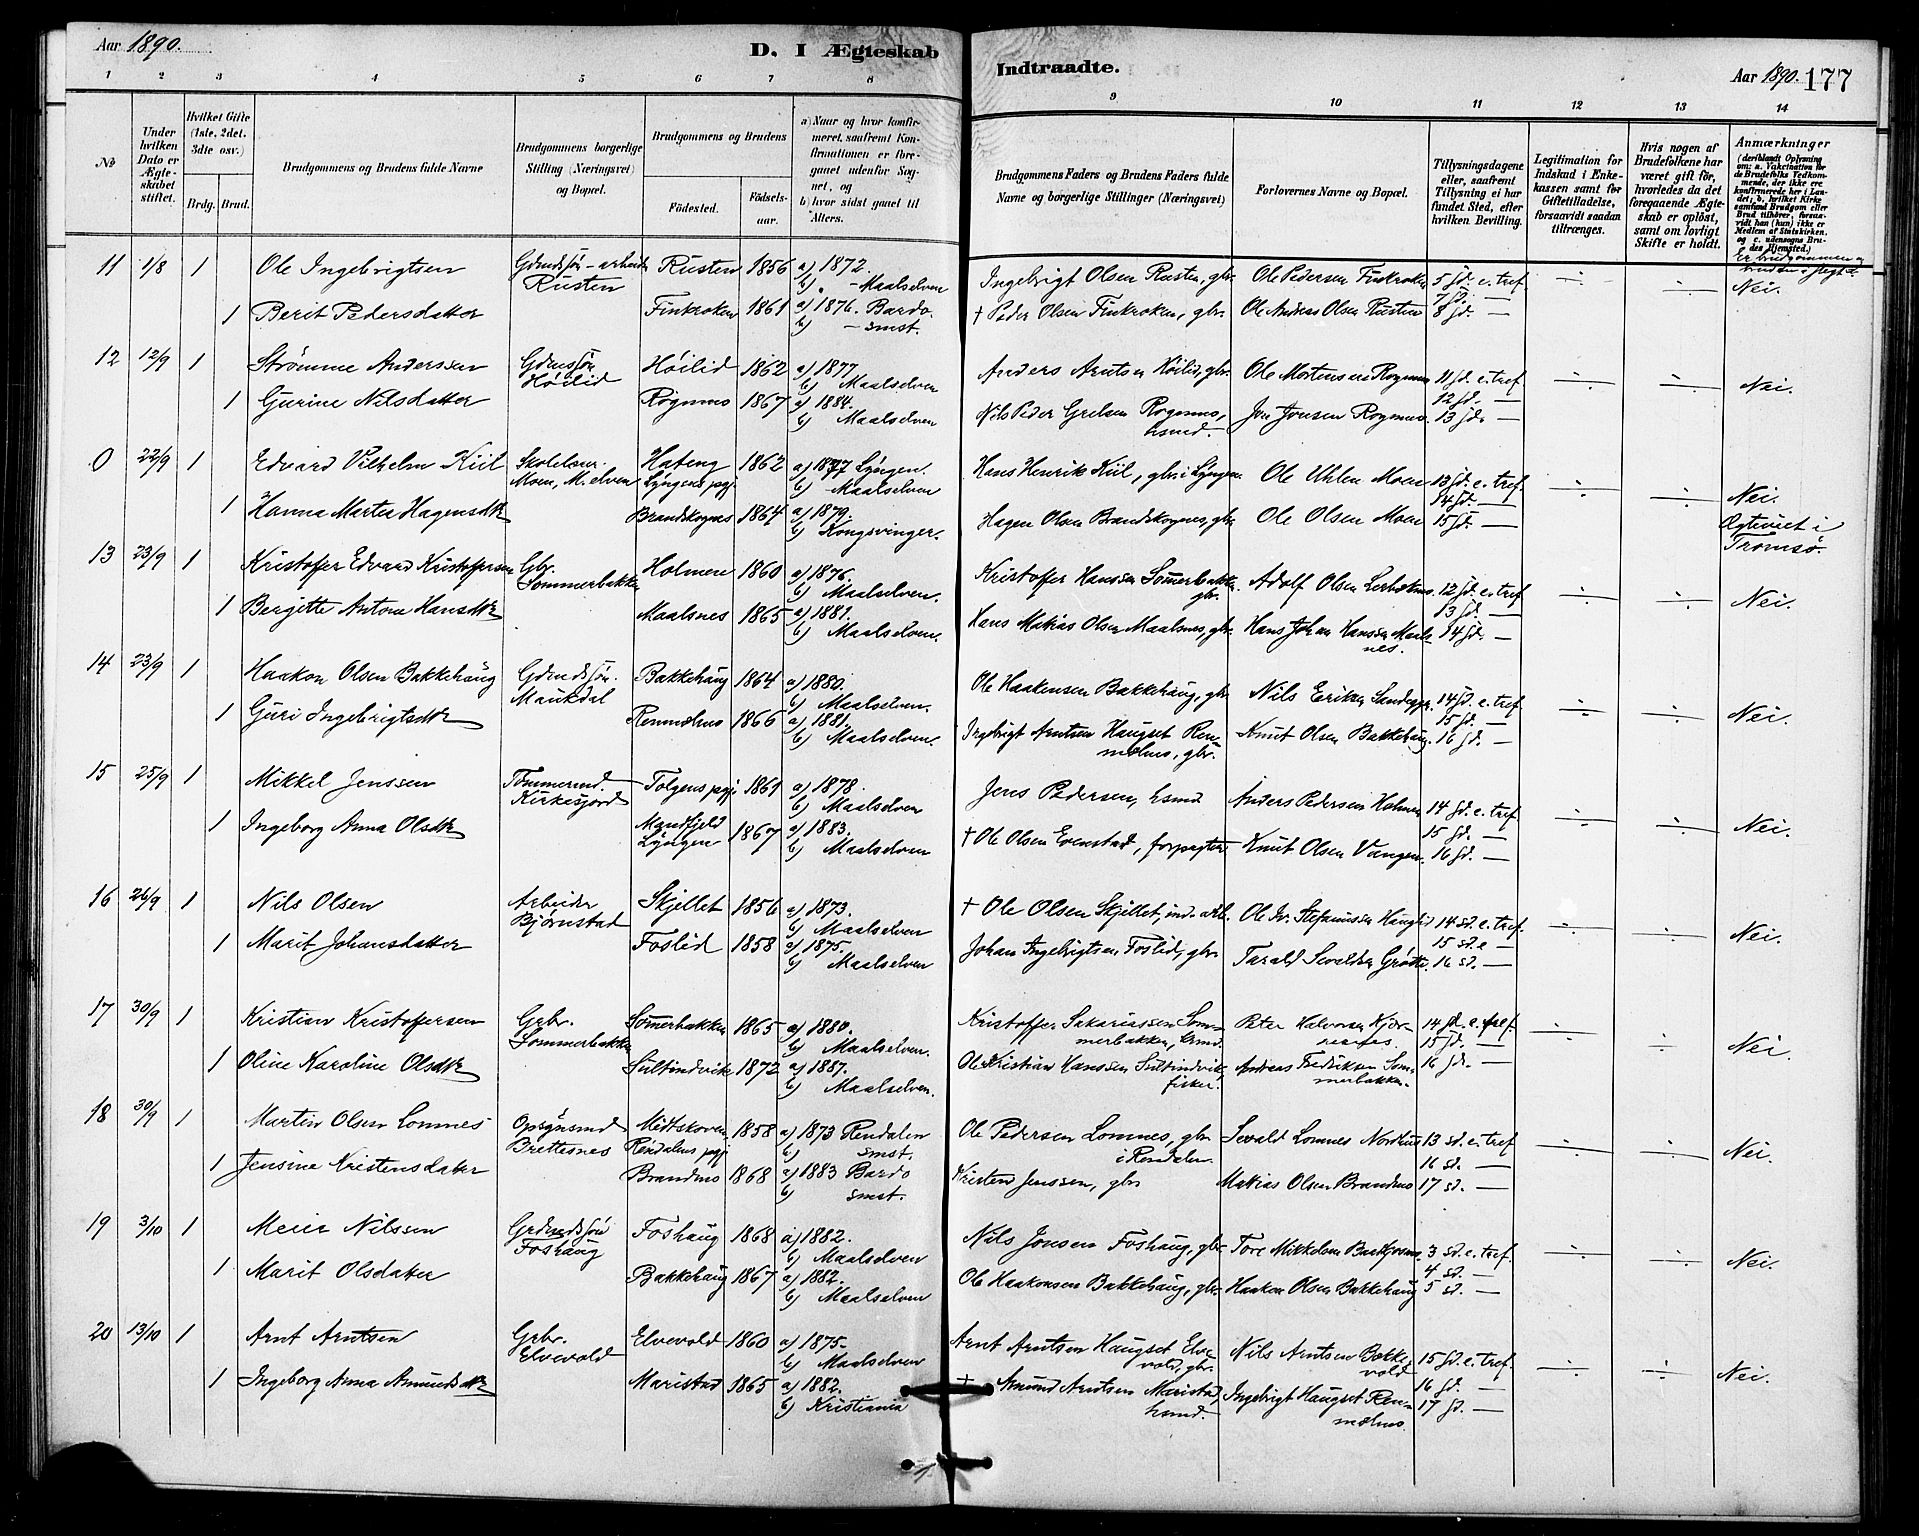 Aar 1890.
D. I Ægteskab
Indtraadte.
Aar 1890. 177
1 2 3 4 5 6 7 8 9 10 11 12 13 14
No
Under hvilken Dato er Ægteskabet stiftet.
Hvilket Gifte (1ste, 2det, 3dte osv.)
Brdg. Brud.
Brudgommens og Brudens fulde Navne
Brudgommens borgerlige Stilling (Næringsvei) og Bopæl.
Brudgommens og Brudens
Fødested.
Fødselsaar.
a) Naar og hvor konfirmeret, saafremt Konfirmationen er foregaaet udenfor Sognet, og
b) hvor sidst gaaet til Alters.
Brudgommens Faders og Brudens Faders fulde Navne og borgerlige Stillinger (Næringsvei)
Forlovernes Navne og Bopæl.
Tillysningsdagene eller, saafremt Tillysning ei har fundet Sted, efter hvilken Bevilling.
Legitimation for Indskud i Enkekassen samt for Giftetilladelse, forsaavidt saadan tiltrænges.
Hvis nogen af Brudefolkene har været gift før, hvorledes da det foregaaende Ægteskab er opløst, samt om lovligt Skifte er holdt.
Anmærkninger
Er brudgommen og bruden i slegt?
11 1/8 1 Ole Ingebrigtsen Gdmdssøn - arbeider Rusten Rusten 1856 a) 1872. b) - Maalselven Ingebrigt Olsen Rusten, gbr. Ole Pedersen Finkroken 5 sd. e. tref. ÷ ÷ Nei.
1 Berit Pedersdatter Finkroken 1861 a) 1876. Bardo. b) - smst. † Peder Olsen Finkroken, gbr. Ole Andreas Olsen Rusten 7 sd. — 8 sd. —
12 12/9 1 Strømme Anderssen Gdmdssøn Høilid Høilid 1862 a) 1877 b) Maalselven Anders Arntsen Høilid, gbr. Ole Mortensen Rognmo 11 sd. e. tref. ÷ ÷ Nei.
1 Gurine Nilsdatter Rognmo 1867 a) 1884. b) Maalselven Nils Peder Grelsen Rognmo, husmd. Jon Jonsen Rognmo. 12 sd. — 13 sd. —
0 22/9 1 Edvard Vilhelm Kiil Skolelær. Moen, M.elven Hateng Lyngens pgj. 1862 a) 1877 Lyngen. b) Maalselven Hans Henrik Kiil, gbr. i Lyngen Ole Uhlen Moen 13 sd. e. tref. ÷ ÷ Nei.
1 Hanna Martea Hagensdtr Brandskognes 1864 a) 1879. b) Kongsvinger. Hagen Olsen Brandskognes, gbr. Ole Olsen Moen 14 sd. — 15 sd. — Ægteviet i Tromsø.
13 23/9 1 Kristoffer Edvard Kristoffersen Gbr. Sommerbakken Holmen 1860 a) 1876. b) Maalselven. Kristoffer Hanssen Sommerbakken gbr. Adolf Olsen 12 sd. e. tref ÷ ÷ Nei.
1 Bergitte Antona Hansdtr Maalsnes 1865 a) 1881. b) Maalselven. Hans Matias Olsen Maalsnes, gbr. Hans Johan Hanssen Maalsnes. 13 sd. — 14 sd. —
14 23/9 1 Haakon Olsen Bakkehaug Gdmdssøn. Maukdal Bakkehaug 1864 a) 1880. b) Maalselven. Ole Haakensen Bakkehaug, gbr. Nils Eriksen 14 sd. e. tref. ÷ ÷ Nei.
1 Guri Ingebrigtsdtr Rennmelmo 1866 a) 1881. b) Maalselven. Ingebrigt Arntsen Haugset Rennmelmo, gbr. Knut Olsen Bakkehaug. 15 sd. — 16 sd. —
15 25/9 1 Mikkel Jenssen Tømmermd. Kirkesjord Tolgens pgj. 1861 a) 1878. b) Maalselven Jens Pedersen, husmd Anders Pedersen Holmen 14 sd. e. tref. ÷ ÷ Nei.
1 Ingeborg Anna Olsdtr Mandfjeld Lyngen 1867 a) 1883. b) Maalselven † Ole Olsen Evenstad, forpagter Knut Olsen Vangen. 15 sd. — 16 sd. —
16 26/9 1 Nils Olsen Arbeider Bjørnstad Skjellet 1856 a) 1873. b) Maalselven † Ole Olsen Skjellet, ind. arb. Ole Jr. Stefanussen Hauglid 14 sd. e. tref. ÷ ÷ Nei.
1 Marit Johansdatter Foslid 1858 a) 1875. b) Maalselven Johan Ingebrigtsen Foslid, gbr Tarald Sevaldsen Grøtte. 15 sd. e — 16 sd. —
17 30/9 1 Kristian Kristoffersen Grbr. Sommerbakken Sommerbakken 1865 a) 1880. b) Maalselven. Kristoffer Sakariassen Sommerbakken, husmd. Peter Halvorsen 14 sd. e. tref. ÷ ÷ Nei.
1 Oline Karoline Olsdtr Sultindvik 1872 a) 1887. b) Maalselven. Ole Kristian Hanssen Sultindvik, fisker. Andreas Fredriksen Sommerbakken. 15 sd. — 16 sd. —
18 30/9 1 Martin Olsen Lomnes Opsynsmd Brettesnes Midtskoven Rendalens pgj. 1858 a) 1873 Rendalen b) smst. Ole Pedersen Lomnes, gbr i Rendalen. Sevald Lomnes Nordhus 13 sd. e. tref ÷ ÷ Nei.
1 Jensine Kristensdatter Brandmo 1868 a) 1883 Bardo b) smst. Kristen Jenssen, gbr Matias Olsen Brandmo 16 sd. — 17 sd. —
19 3/10 1 Meier Nilssen Grdmdssøn Foshaug Foshaug 1868 a) 1882. b) Maalselven Nils Jonsen Foshaug, gbr. Tore Mikkelsen 3 sd. e. tref. ÷ ÷ Nei.
1 Marit Olsdatter Bakkehaug 1867 a) 1882. b) Maalselven Ole Haakonsen Bakkehaug, gbr. Haakon Olsen Bakkehaug 4 sd. — 5 sd. —
20 13/10 1 Arnt Arntsen Grbr. Elvevold Elvevold 1860 a) 1875. b) Maalselven Arnt Arntsen Haugset Elvevold, gbr. Nils Arntsen Bakkevold 15 sd. e. tref. ÷ ÷ Nei.
1 Ingeborg Anna Amundsdtr Maristad 1865 a) 1882. b) Kristiania † Amund Arntsen Maristad, husmd. Ingebrigt Haugset Rennmelmo. 16 sd. — 17 sd. —